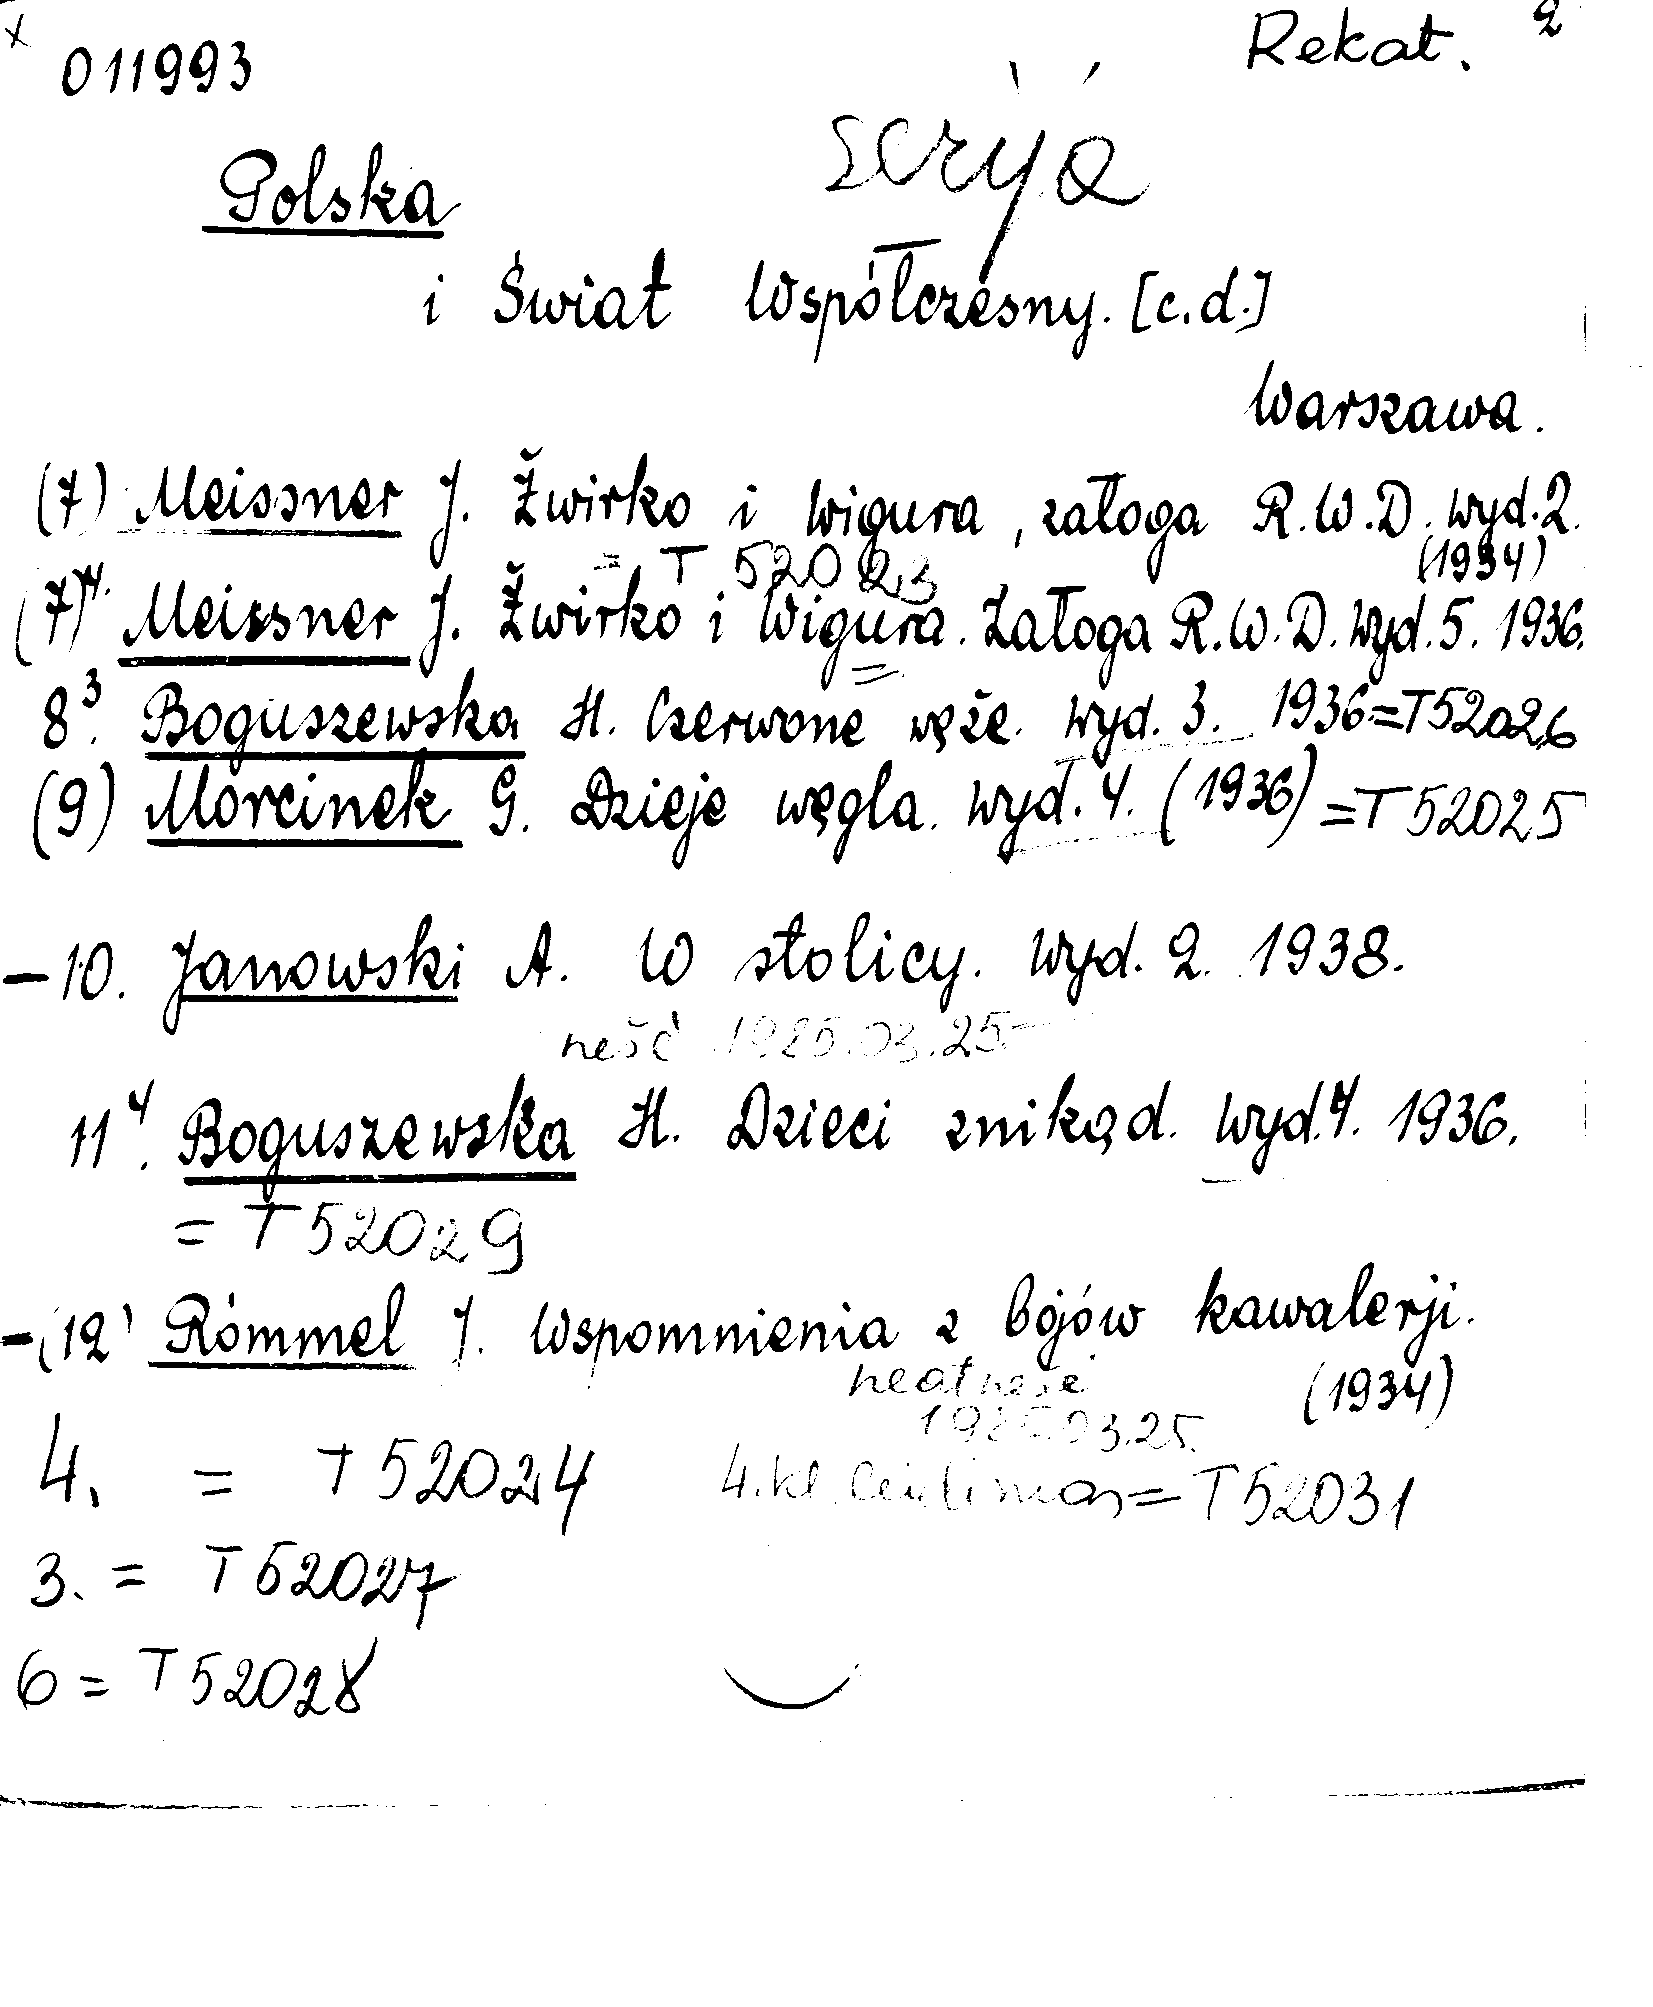 x 011993 Rekat. 2
serya
Polska
i Świat Współczesny. [c.d.]
Warszawa.
(7) Meissner J. Żwirko i Wigura, załoga R.W.D. wyd. 2.
= T 52023 (1934)
(7)4. Meissner J. Żwirko i Wigura. Załoga R.W.D. Wyd. 5. 1936.
8.3 Boguszewska H. Czerwone węże. Wyd. 3. 1936 = T52026
(9) Morcinek G. Dzieje węgla. Wyd. 4. (1936) = T52025
- 10. Janowski A. W stolicy. Wyd. 2. 1938.
nešč 1985.03.25.
11.4 Boguszewska H. Dzieci znikąd. Wyd. 4. 1936.
= T52029
- (12) Rómmel J. Wspomnienia z bojów kawalerji.
(1934)
03.25.
4. = T 52024 4. kl. = T52031
3. = T 52027
6 = T 52028